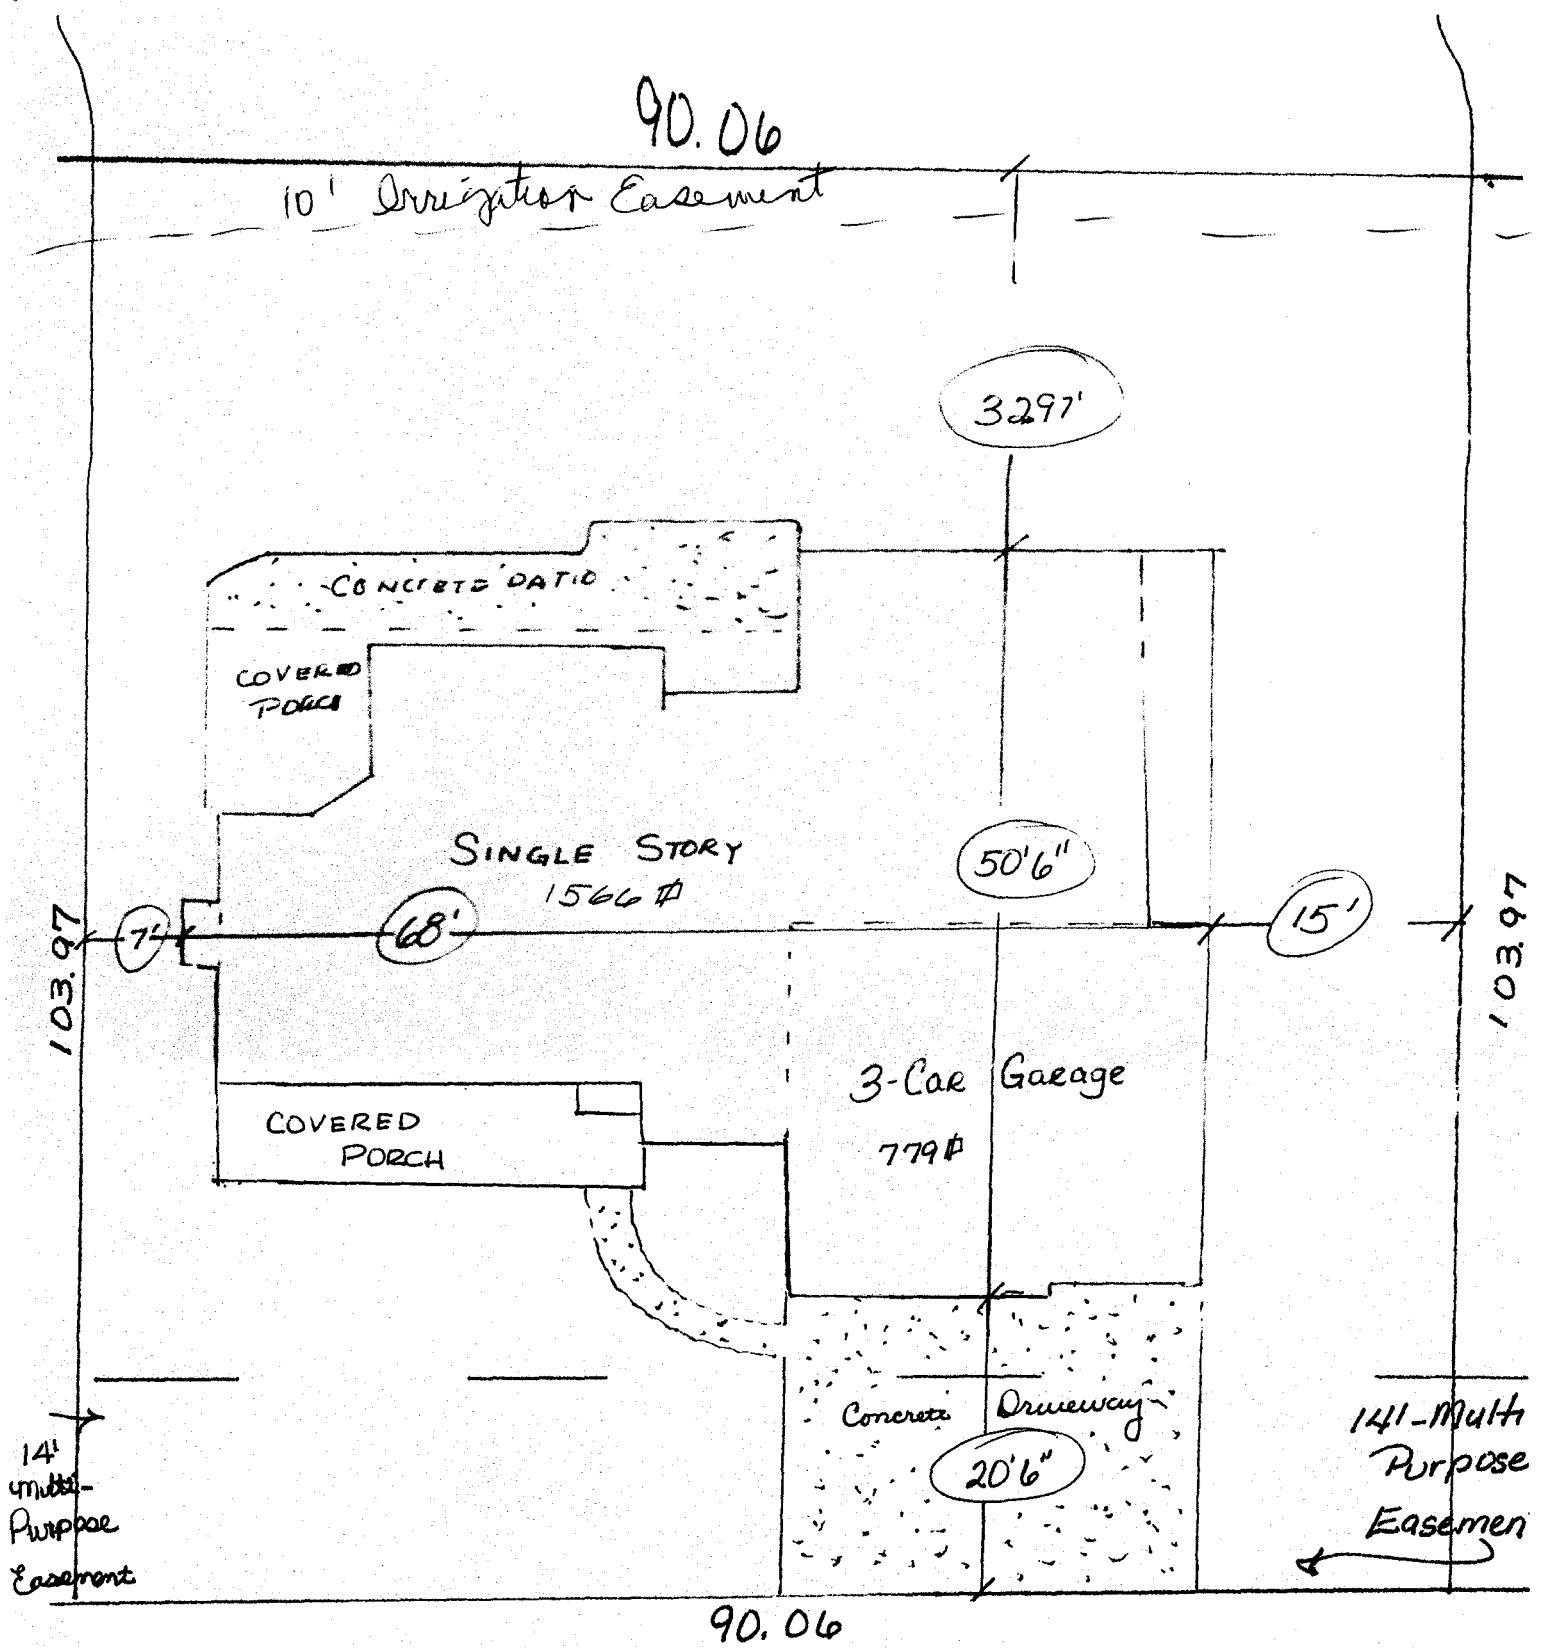 90.06
10' Irrigation Easement
3297'
CONCRETE PATIO
COVERED
PORCH
SINGLE STORY
1566 ⌗
50'6"
7'
68'
15'
103.97
103.97
3-Car Garage
779⌗
COVERED
PORCH
Concrete Driveway
20'6"
14'
Multi-
Purpose
Easement
14'-Multi
Purpose
Easemen
90.06